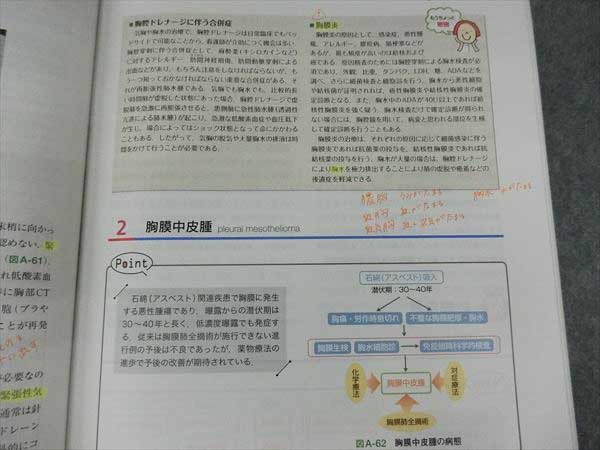 もうちょっと
勉強
■胸腔ドレナージに伴う合併症
気胸や胸水の治療で、胸腔ドレナージは日常臨床でもベッ
ドサイドで可能なことから、看護師が介助につく機会は多い。
胸腔穿刺に伴う合併症として、麻酔薬（キシロカインなど）
に対するアレルギー、肋間神経損傷、肋間動静脈穿刺による
出血などがあり、もちろん注意をしなければならないが、も
う一つ知っておかなければならない重要な合併症がある。そ
れが再膨張性肺水腫である。気胸でも胸水でも、比較的長
い時間肺が虚脱した状態にあった場合、胸腔ドレナージで虚
脱肺を急激に再膨張させると、患側肺に急性肺水腫（透過性
亢進による肺水腫）が起こり、急激な低酸素血症や血圧低下
が生じ、場合によってはショック状態となって命にかかわる
こともある。したがって、気胸の脱気や大量胸水の排液は時
間をかけて行うことが必要である。
■胸膜炎
胸膜炎の原因として、感染症、悪性腫
瘍、アレルギー、膠原病、肺梗塞などが
あるが、最も頻度が高いのは結核および
癌である。原因検査のためには胸腔穿刺による胸水検査が必
須であり、外観、比重、タンパク、LDH、糖、ADAなどを
調べ、さらに細菌検査と細胞診を行う。胸水から悪性細胞
や結核菌が証明されれば、癌性胸膜炎や結核性胸膜炎の確
定診断となる。また、胸水中のADAが40U以上であれば結
核性胸膜炎を強く疑う。胸水検査だけで確定診断が得られ
ない場合には、胸腔鏡を用いて、病変と思われる部位を生検
して確定診断を行うこともある。
胸膜炎の治療は、それぞれの原因に応じて細菌感染に伴う
胸膜炎であれば抗菌薬の投与を、結核性胸膜炎であれば抗
結核薬の投与を行う。胸水が大量の場合は、胸腔ドレナージ
により胸水を極力排出することにより肺の虚脱や癒着などの
後遺症を軽減できる。
膿胸 うみがたまる
胸水 水がたまる
血胸 血がたまる
血気胸 血と空気がたまる
2 胸膜中皮腫 pleural mesothelioma
Point
石綿（アスベスト）関連疾患で胸膜に発生
する悪性腫瘍であり、曝露からの潜伏期は
30～40年と長く、低濃度曝露でも発症す
る。従来は胸膜肺全摘術が施行できない進
行例の予後は不良であったが、薬物療法の
進歩で予後の改善が期待されている。
石綿（アスベスト）吸入
潜伏期：30～40年
胸痛・労作時息切れ
不整な胸膜肥厚・胸水
胸膜生検
胸水細胞診
免疫組織科学的検査
化学療法
胸膜中皮腫
対症療法
胸膜肺全摘術
図A-62 胸膜中皮腫の病態
末梢に向かっ
認めない。緊
（図A-61）。
れ低酸素血
に胸部CT
胞（ブラや
ことが再発
が必要なの
緊張性気
通常は針
ドレーン